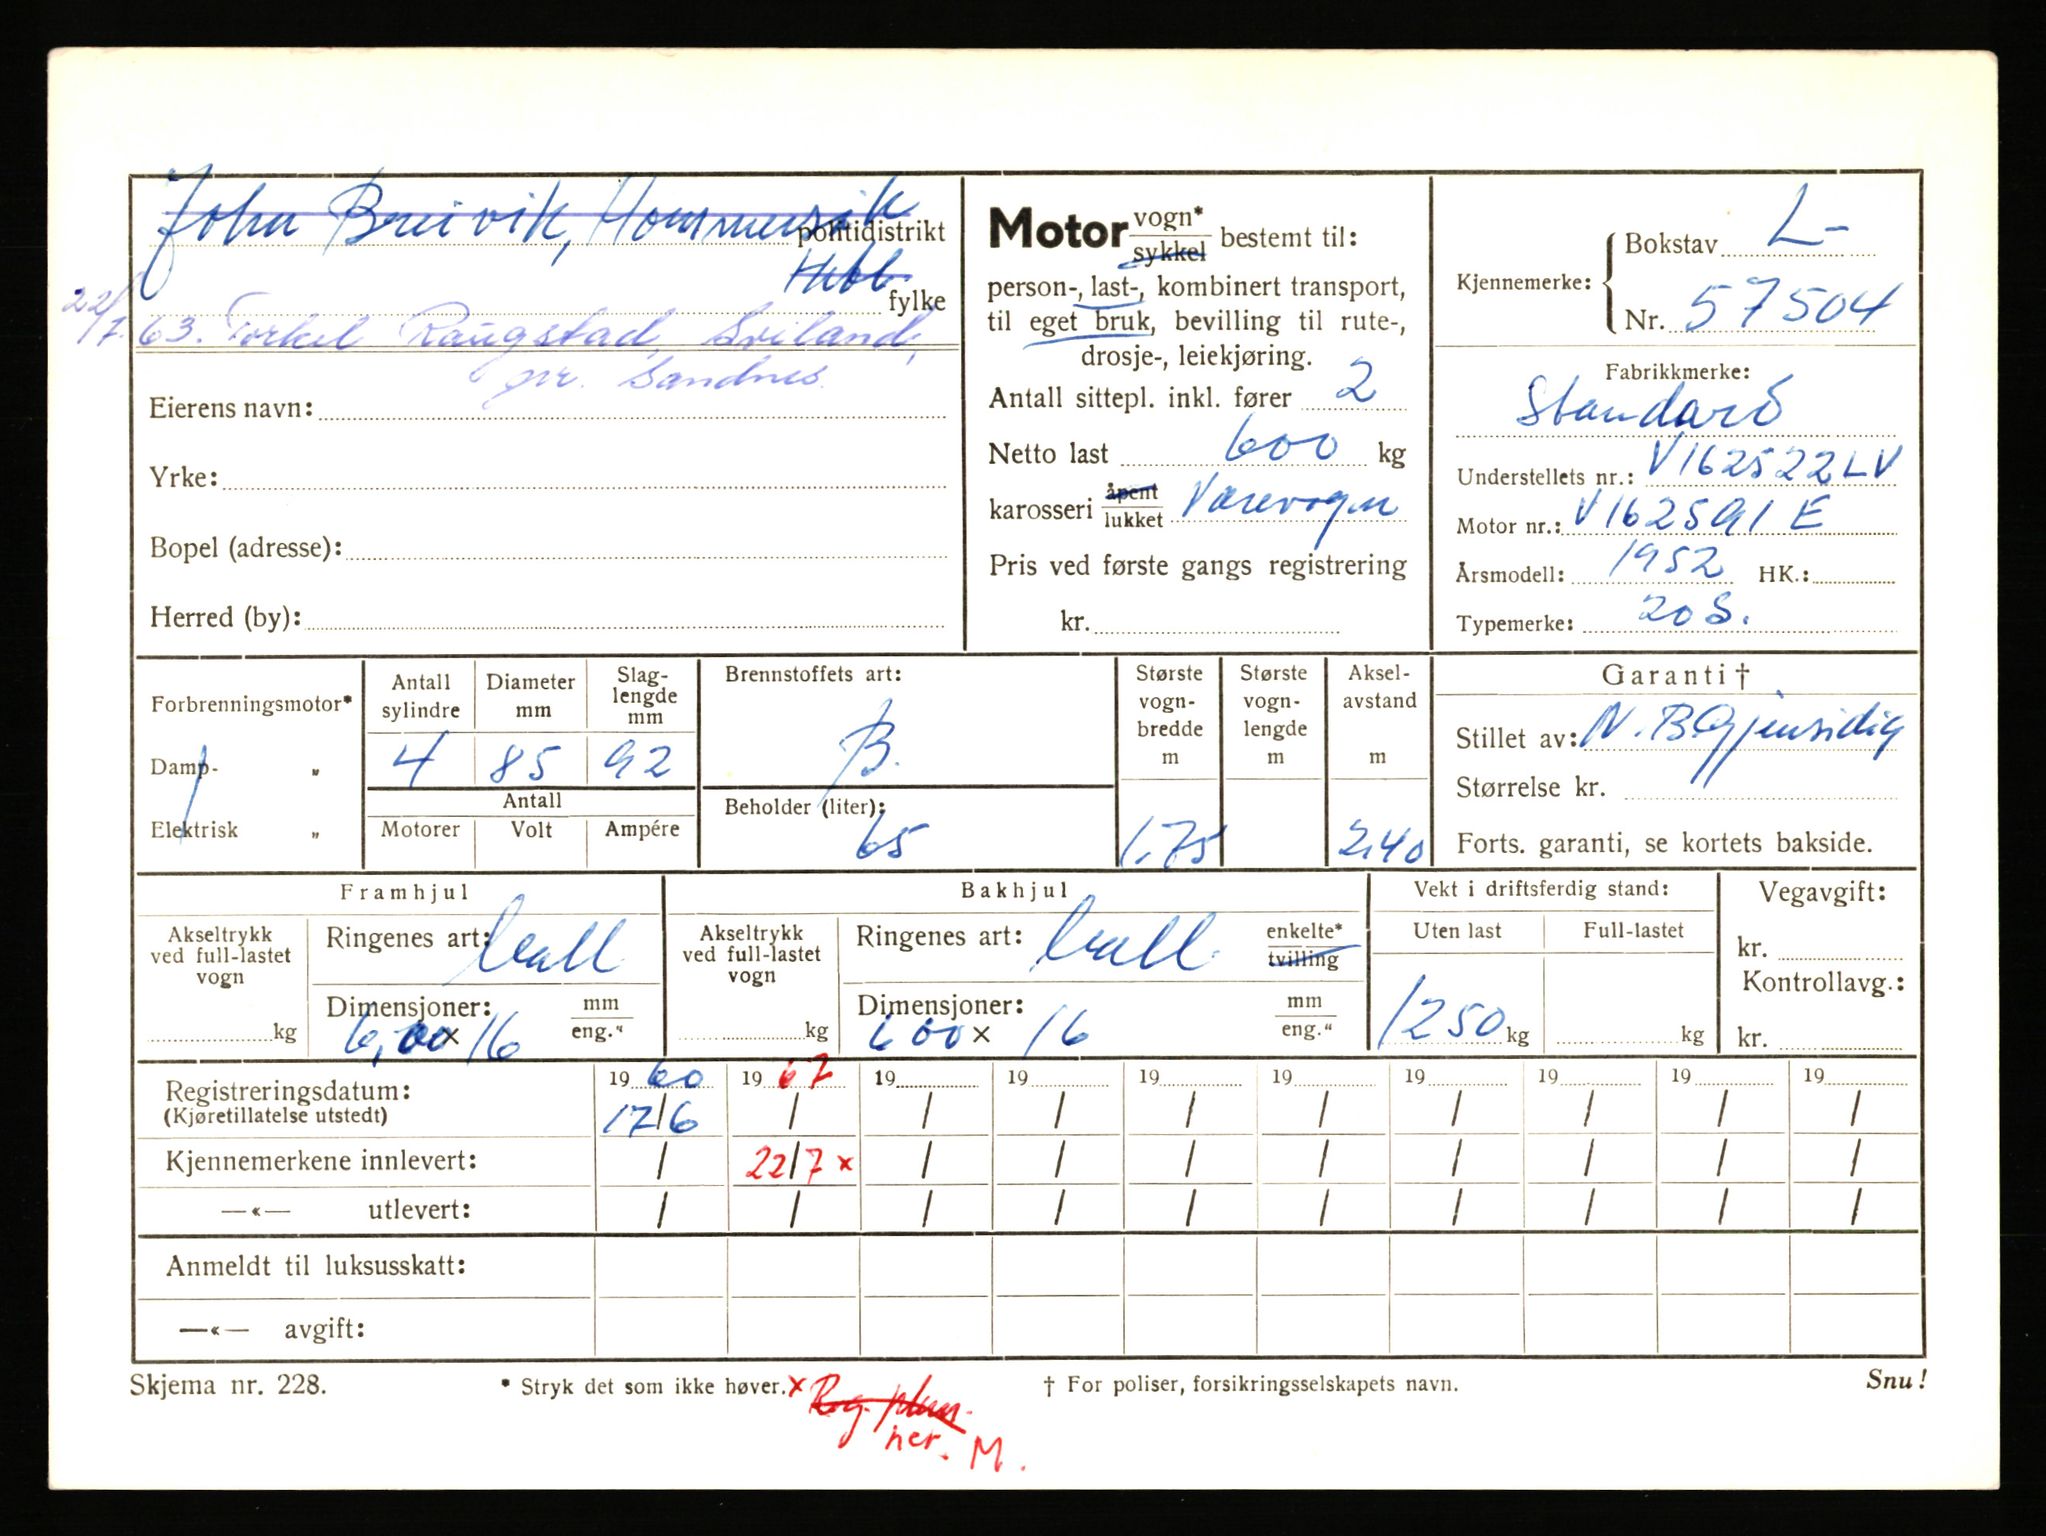 John Breivik, Hommersåk politidistrikt
fylke
22/7. 63. Torkel Raugstad, Sviland,
pr. Sandnes.
Eierens navn:
Yrke:
Bopel (adresse):
Herred (by):
Motor vogn* / sykkel bestemt til:
person-, last-, kombinert transport,
til eget bruk, bevilling til rute-,
drosje-, leiekjøring.
Antall sittepl. inkl. fører 2
Netto last 600 kg
karosseri åpent / lukket Varevogn
Pris ved første gangs registrering
kr.
Kjennemerke: Bokstav L-
Nr. 57504
Fabrikkmerke:
Standard
Understellets nr.: V162522LV
Motor nr.: V162591 E
Årsmodell: 1952 HK.:
Typemerke: 20 S.
Forbrenningsmotor*
Damp- „
Elektrisk „
Antall sylindre Diameter mm Slag-lengde mm
4 85 92
Antall
Motorer Volt Ampére
Brennstoffets art:
B.
Beholder (liter):
65
Største vogn-bredde m
1,75
Største vogn-lengde m
Aksel-avstand m
2,40
Garanti †
Stillet av: N. B Gjensidig
Størrelse kr.
Forts. garanti, se kortets bakside.
Framhjul
Akseltrykk ved full-lastet vogn
kg
Ringenes art:
Dimensjoner: mm / eng.“
6,00 x 16
Bakhjul
Akseltrykk ved full-lastet vogn
kg
Ringenes art: enkelte* / tvilling
Dimensjoner: mm / eng.“
600 x 16
Vekt i driftsferdig stand:
Uten last Full-lastet
1250 kg kg
Vegavgift:
kr.
Kontrollavg.:
kr.
Registreringsdatum: 19 60 19 67 19 19 19 19 19 19 19 19
(Kjøretillatelse utstedt) 17/6 / / / / / / / / /
Kjennemerkene innlevert: / 22/7 x / / / / / / / /
—«— utlevert: / / / / / / / / / /
Anmeldt til luksusskatt:
—«— avgift:
Skjema nr. 228. * Stryk det som ikke høver. x Reg. † For poliser, forsikringsselskapets navn. Snu!
her. M.